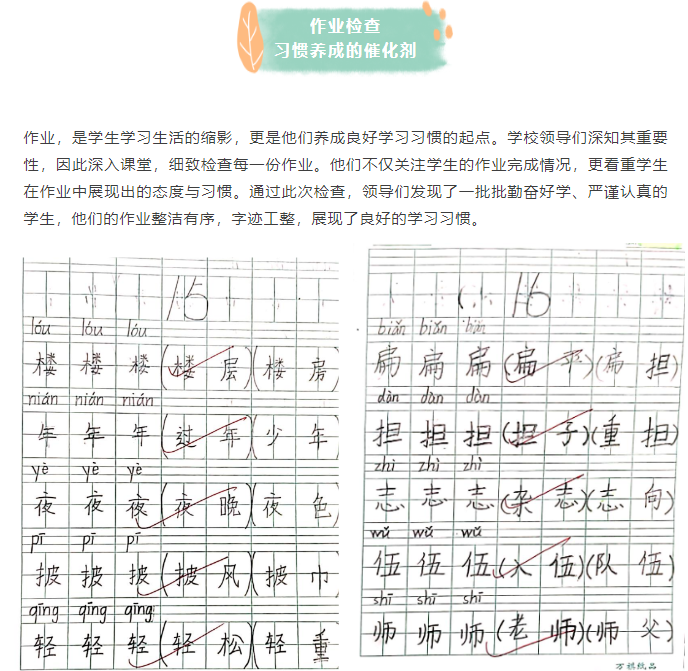 作业检查
习惯养成的催化剂
作业，是学生学习生活的缩影，更是他们养成良好学习习惯的起点。学校领导们深知其重要
性，因此深入课堂，细致检查每一份作业。他们不仅关注学生的作业完成情况，更看重学生
在作业中展现出的态度与习惯。通过此次检查，领导们发现了一批批勤奋好学、严谨认真的
学生，他们的作业整洁有序，字迹工整，展现了良好的学习习惯。
15
lóu lóu lóu
楼 楼 楼 (楼 层)(楼 房)
nián nián nián
年 年 年 (过 年)(少 年)
yè yè yè
夜 夜 夜 (夜 晚)(夜 色)
pī pī pī
披 披 披 (披 风)(披 巾)
qīng qīng qīng
轻 轻 轻 (轻 松)(轻 重
16
biǎn biǎn biǎn
扁 扁 扁 (扁 平)(扁 担)
dàn dàn dàn
担 担 担 (担 子)(重 担)
zhì zhì zhì
志 志 志 (杂 志)(志 向)
wǔ wǔ wǔ
伍 伍 伍 (入 伍)(队 伍)
shī shī shī
师 师 师 (老 师)(师 父)